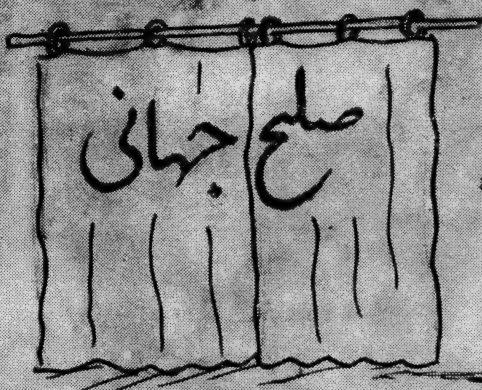 صلح جهانی